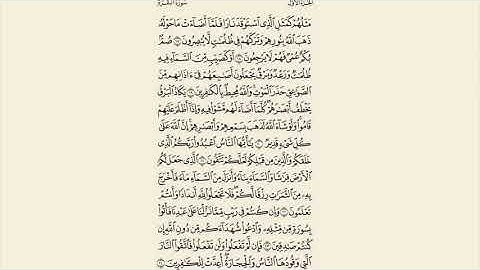 الجزء الأول سورة البقرة
مَثَلُهُمْ كَمَثَلِ ٱلَّذِى ٱسْتَوْقَدَ نَارًا فَلَمَّآ أَضَآءَتْ مَا حَوْلَهُۥ
ذَهَبَ ٱللَّهُ بِنُورِهِمْ وَتَرَكَهُمْ فِى ظُلُمَٰتٍ لَّا يُبْصِرُونَ ١٧ صُمٌّۢ
بُكْمٌ عُمْىٌ فَهُمْ لَا يَرْجِعُونَ ١٨ أَوْ كَصَيِّبٍ مِّنَ ٱلسَّمَآءِ فِيهِ
ظُلُمَٰتٌ وَرَعْدٌ وَبَرْقٌ يَجْعَلُونَ أَصَٰبِعَهُمْ فِىٓ ءَاذَانِهِم مِّنَ
ٱلصَّوَٰعِقِ حَذَرَ ٱلْمَوْتِ وَٱللَّهُ مُحِيطٌۢ بِٱلْكَٰفِرِينَ ١٩ يَكَادُ ٱلْبَرْقُ
يَخْطَفُ أَبْصَٰرَهُمْ كُلَّمَآ أَضَآءَ لَهُم مَّشَوْا۟ فِيهِ وَإِذَآ أَظْلَمَ عَلَيْهِمْ
قَامُوا۟ وَلَوْ شَآءَ ٱللَّهُ لَذَهَبَ بِسَمْعِهِمْ وَأَبْصَٰرِهِمْ إِنَّ ٱللَّهَ عَلَىٰ
كُلِّ شَىْءٍ قَدِيرٌ ٢٠ يَٰٓأَيُّهَا ٱلنَّاسُ ٱعْبُدُوا۟ رَبَّكُمُ ٱلَّذِى
خَلَقَكُمْ وَٱلَّذِينَ مِن قَبْلِكُمْ لَعَلَّكُمْ تَتَّقُونَ ٢١ ٱلَّذِى جَعَلَ لَكُمُ
ٱلْأَرْضَ فِرَٰشًا وَٱلسَّمَآءَ بِنَآءً وَأَنزَلَ مِنَ ٱلسَّمَآءِ مَآءً فَأَخْرَجَ
بِهِۦ مِنَ ٱلثَّمَرَٰتِ رِزْقًا لَّكُمْ فَلَا تَجْعَلُوا۟ لِلَّهِ أَندَادًا وَأَنتُمْ
تَعْلَمُونَ ٢٢ وَإِن كُنتُمْ فِى رَيْبٍ مِّمَّا نَزَّلْنَا عَلَىٰ عَبْدِنَا فَأْتُوا۟
بِسُورَةٍ مِّن مِّثْلِهِۦ وَٱدْعُوا۟ شُهَدَآءَكُم مِّن دُونِ ٱللَّهِ إِن
كُنتُمْ صَٰدِقِينَ ٢٣ فَإِن لَّمْ تَفْعَلُوا۟ وَلَن تَفْعَلُوا۟ فَٱتَّقُوا۟ ٱلنَّارَ
ٱلَّتِى وَقُودُهَا ٱلنَّاسُ وَٱلْحِجَارَةُ أُعِدَّتْ لِلْكَٰفِرِينَ ٢٤